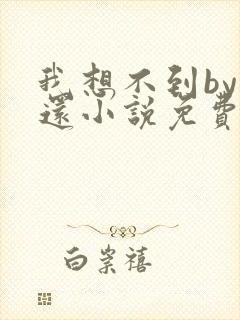 我想不到by
还小說免費
白崇禧